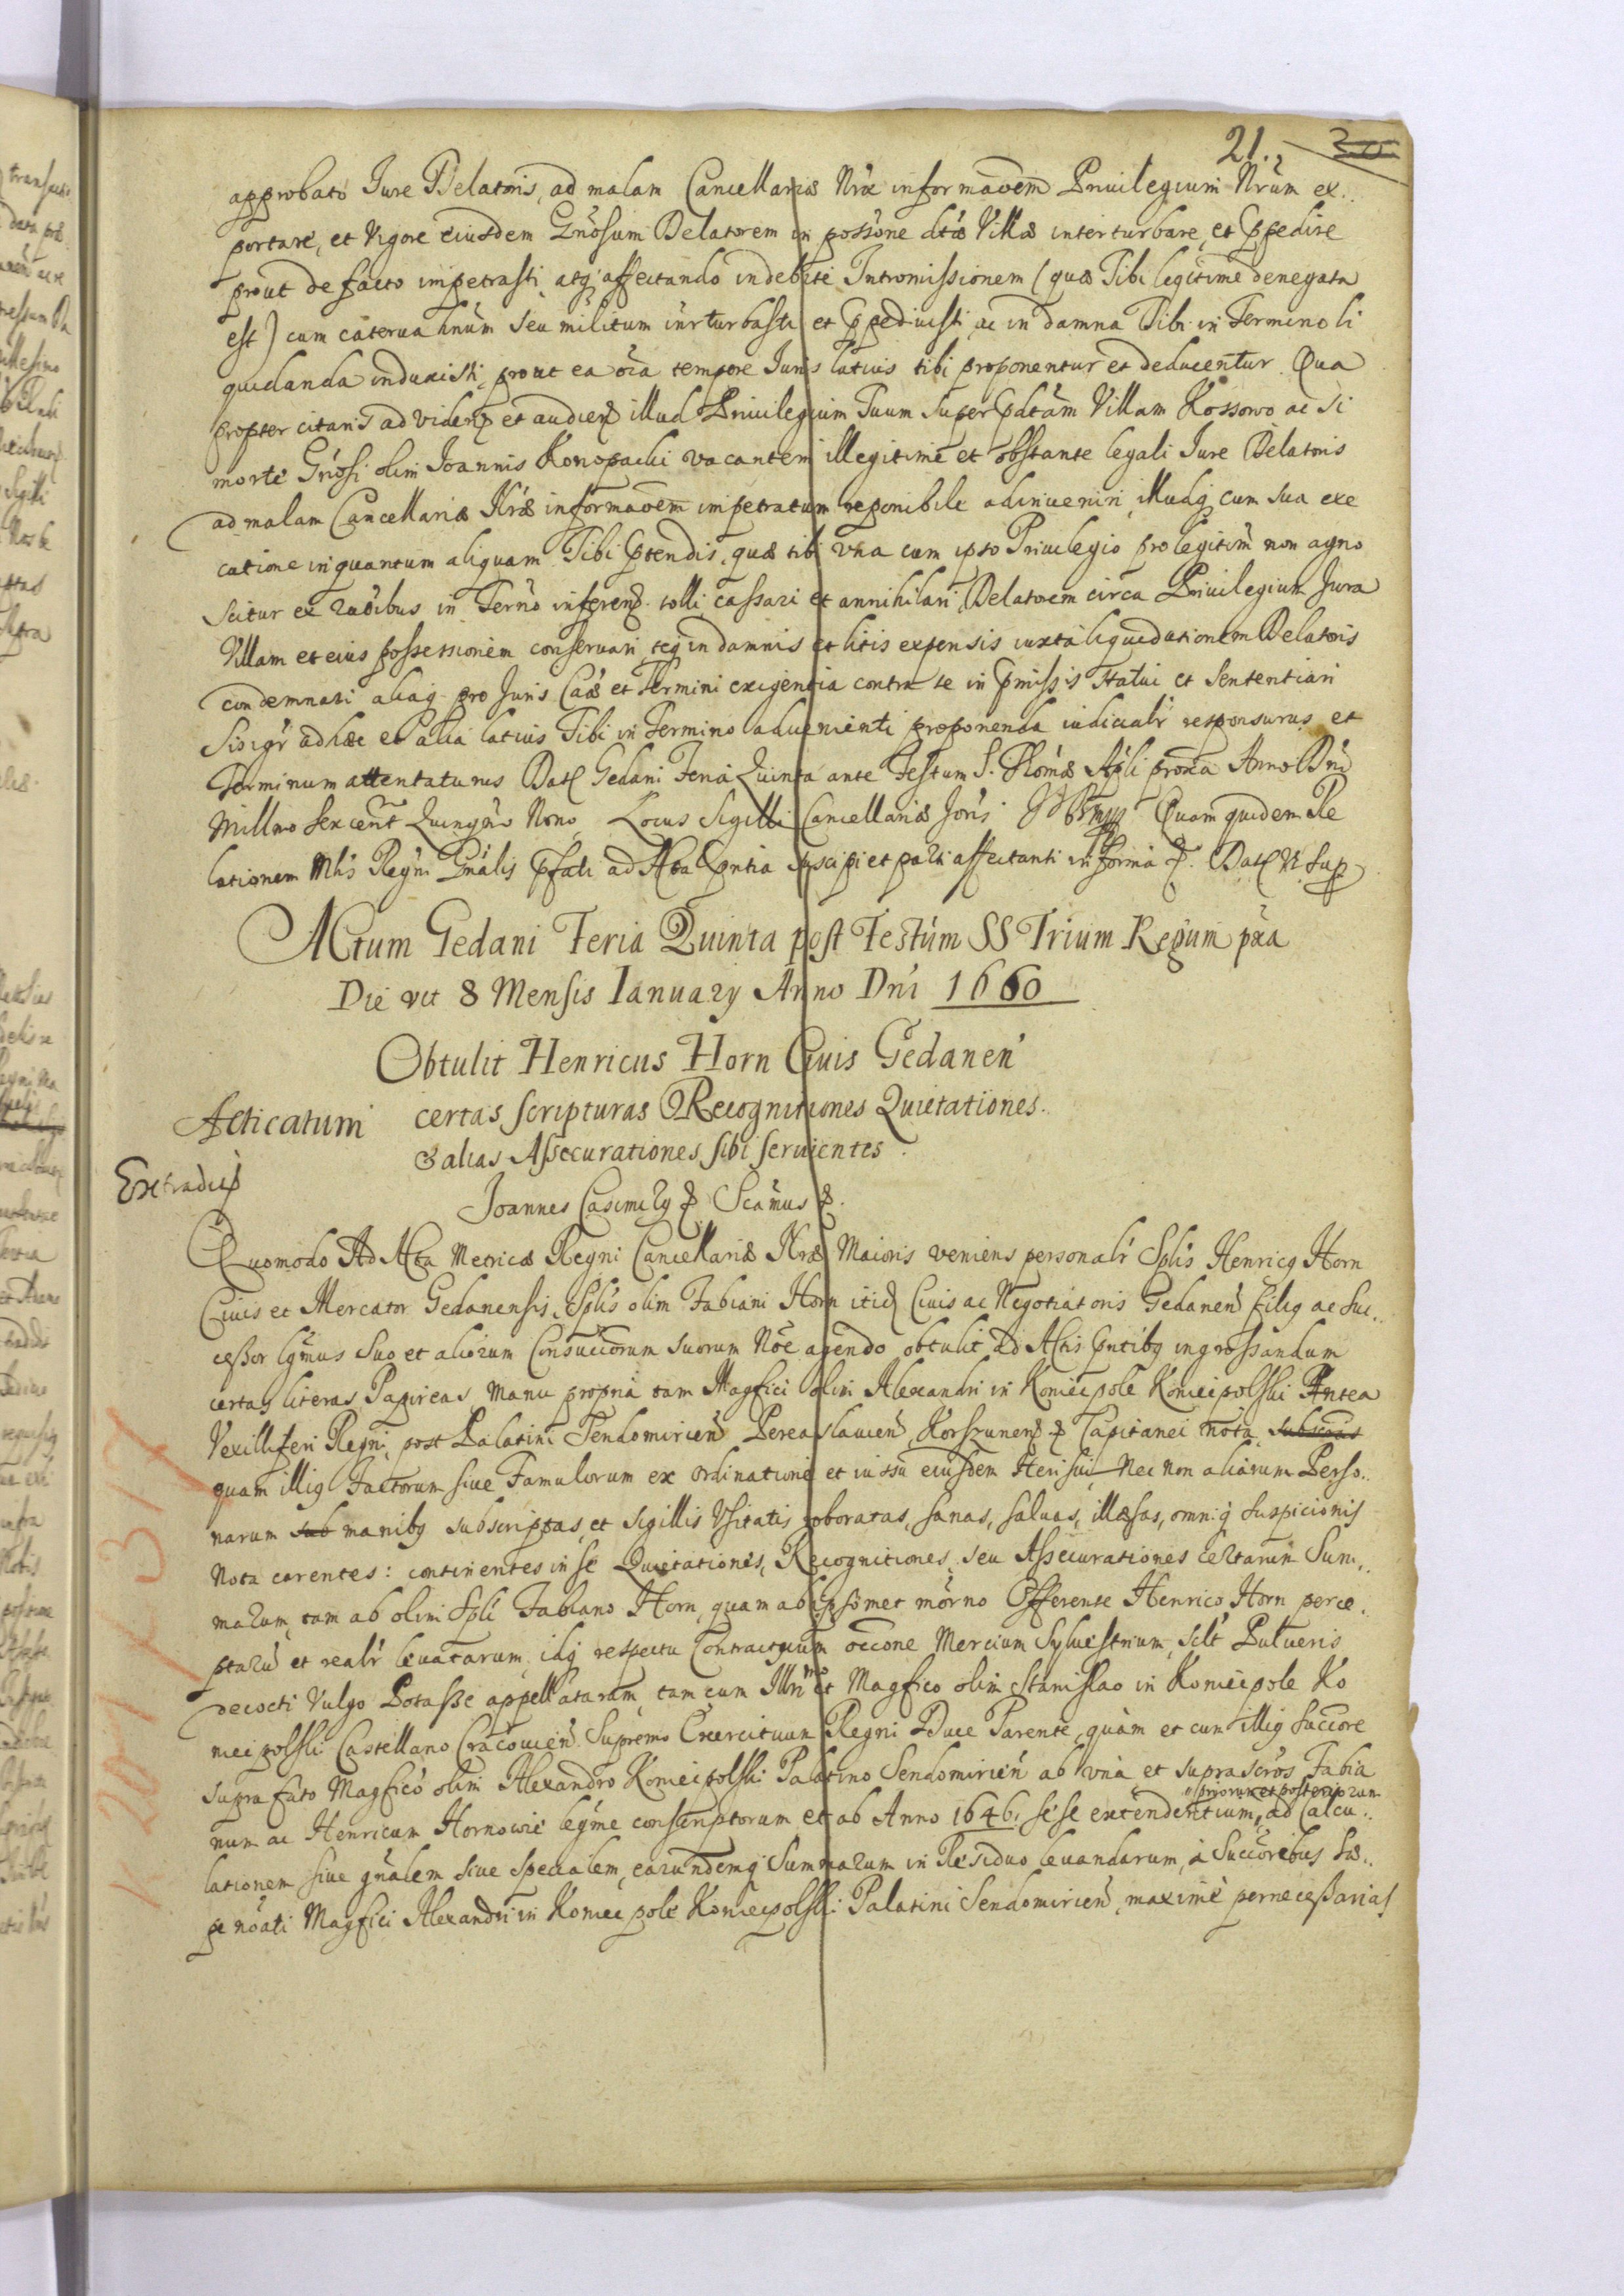 21. 30
approbato Jure Delatoris, ad malam Cancellariæ Nræ informaõem Priuilegium Nrum ex..
portare, et Vigore eiusdem Gnosum Delatorem in possõne dtæ Villæ interturbare, et Ppedire
prout de facto impetrasti atq affectando indebite Intromissionem (quæ Tibi legitime denegata
est) cum caterua hnum seu militum inrturbasti et Ppediuisti ac in damna Tibi in Termino li
quidanda induxisti, prout ea oia tempore Juris latius tibi proponentur et deducentur. Qua
propter citaris ad viden et audien illud Priuilegium Tuum super Pdtam Villam Kossowo ac si
morte Gnosi olim Joannis Konopacki vacantem illegitime et obstante legali Jure Delatoris
ad malam Cancellariæ Nræ informaõem impetratum reponibile adinueniri, illudq cum sua exe
catione inquantum aliquam Tibi Ptendis, quæ tibi vna cum ipso Priuilegio pro legitim non agno
scitur ex raõibus in Terno inferend. tolli cassari et annihilari, Delatorem circa Priuilegium Jura
Villam et eius possessionem conseruari teq in damnis et litis expensis iuxta liquidationem Delatoris
condemnari aliaq pro Juris Caæ et Termini exigentia contra te in Pmissis statui et sententiari
Sisigr ad hæc et alia latius Tibi in Termino aduenienti proponenda iudicialr responsurus et
Terminum attentaturus Dat Gedani Feria Quinta ante Festum S. Thomæ Apli proxa Anno Dni
Millmo sexcent Quingmo Nono. Locus Sigilli Cancellariæ Joris Quam quidem Re
lationem Mlis Regni Gnalis Pfati ad Acta Pntia suscipi et parti affectanti in forma &. Dat Vt sup
Actum Gedani Feria Quinta post Festum SS Trium Regum pxa
Die vit 8 Mensis Ianuary Anno Dni 1660
Obtulit Henricus Horn Ciuis Gedanen
Acticatum certas scripturas Recognitiones Quietationes.
& alias Assecurationes sibi seruientes.
Extradit
Joannes Casimiry & Sciamus &.
Quomodo Ad Acta Metricæ Regni Cancellariæ Nræ Maioris veniens personalr Splis Henricq Horn
Ciuis et Mercator Gedanensis, Splis olim Fabiani Horn itid Ciuis ac Negotiatoris Gedanen filiq ac Suc..
cessor lgmus suo et aliorum Consuccorum suorum Noe agendo obtulit ad Actis Pntibq ingrossandum
certas literas Papireas, Manu propria tam Magfici olim Alexandri in Koniecpole Koniecpolski Antea
Vexilliferi Regni, post Palatini Sendomirien Pereaslauien, Korszunen & Capitanei nota, subscras
quam illiq Factorum siue Famulorum ex Ordinatione et iussu eiusdem Heri sui, Nec non aliarum Perso..
narum sub manibq subscriptas, et sigillis Vsitatis roboratas, sanas, saluas, illæsas, omniq suspicionis
Nota carentes: continentes in se Quietationes, Recognitiones, seu Assecurationes certarum Sum..
marum, tam ab olim Spli Fabiano Horn, quam ab ipsomet morno Offerente Henrico Horn perce.
ptaru et realr leuatarum, idq respectu Contractuum occone Mercium Syluestrium, scilt Pulueris
decocti Vulgo Potasze appellatarum tam cum Illrimo et Magfico olim Stanislao in Koniecpole Ko
niecpolski Castellano Cracouien Supremo Exercituum Regni Duce Parente, quàm et cum illiq Succore
supra fato Magfico olim Alexandro Koniecpolski Palatino Sendomirien ab vna et suprascros Fabia
num ac Henricum Hornowie legme conscriptorum et ab Anno 1646. sese extendentium, priorum et posteriorum ad Calcu..
lationem siue gnalem siue specialem, earundemq Summarum in Residuo leuandarum, à Succoribus sæ..
pe noati Magfici Alexandri in Koniecpole Koniecpolski Palatini Sendomirien, maximè pernecessarias